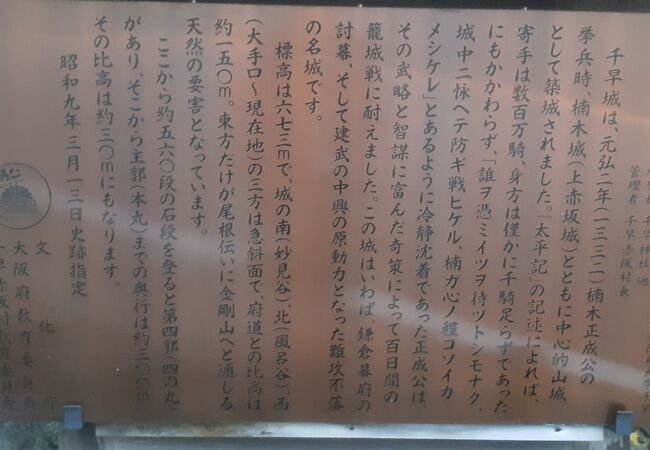 管理者 千早赤阪村長
千早城は、元弘二年(一三三二)楠木正成公の
挙兵時、楠木城(上赤坂城)とともに中心的山城
として築城されました。「太平記」の記述によれば、
寄手は数百万騎、身方は僅かに千騎足らずであった
にもかかわらず、「誰ヲ憑ミイツヲ待ツトシモナク、
城中ニ怺ヘテ防ギ戦ヒケル、楠ガ心ノ程コソイカ
メシケレ」とあるように冷静沈着であった正成公は、
その武略と智謀に富んだ奇策によって百日間の
籠城戦に耐えました。この城はいわば、鎌倉幕府の
討幕、そして建武の中興の原動力となった難攻不落
の名城です。
標高は六七三mで、城の南(妙見谷)、北(風呂谷)、西
(大手口〜現在地)の三方は急斜面で、府道との比高は
約一五〇m。東方だけが尾根伝いに金剛山へと通じる
天然の要害となっています。
ここから約五六〇段の石段を登ると第四郭(四の丸)
があり、そこから主郭(本丸)までの奥行は約三〇〇m、
その比高は約三〇mにもなります。
昭和九年三月一三日史跡指定
文化庁
大阪府教育委員会
千早赤阪村教育委員会